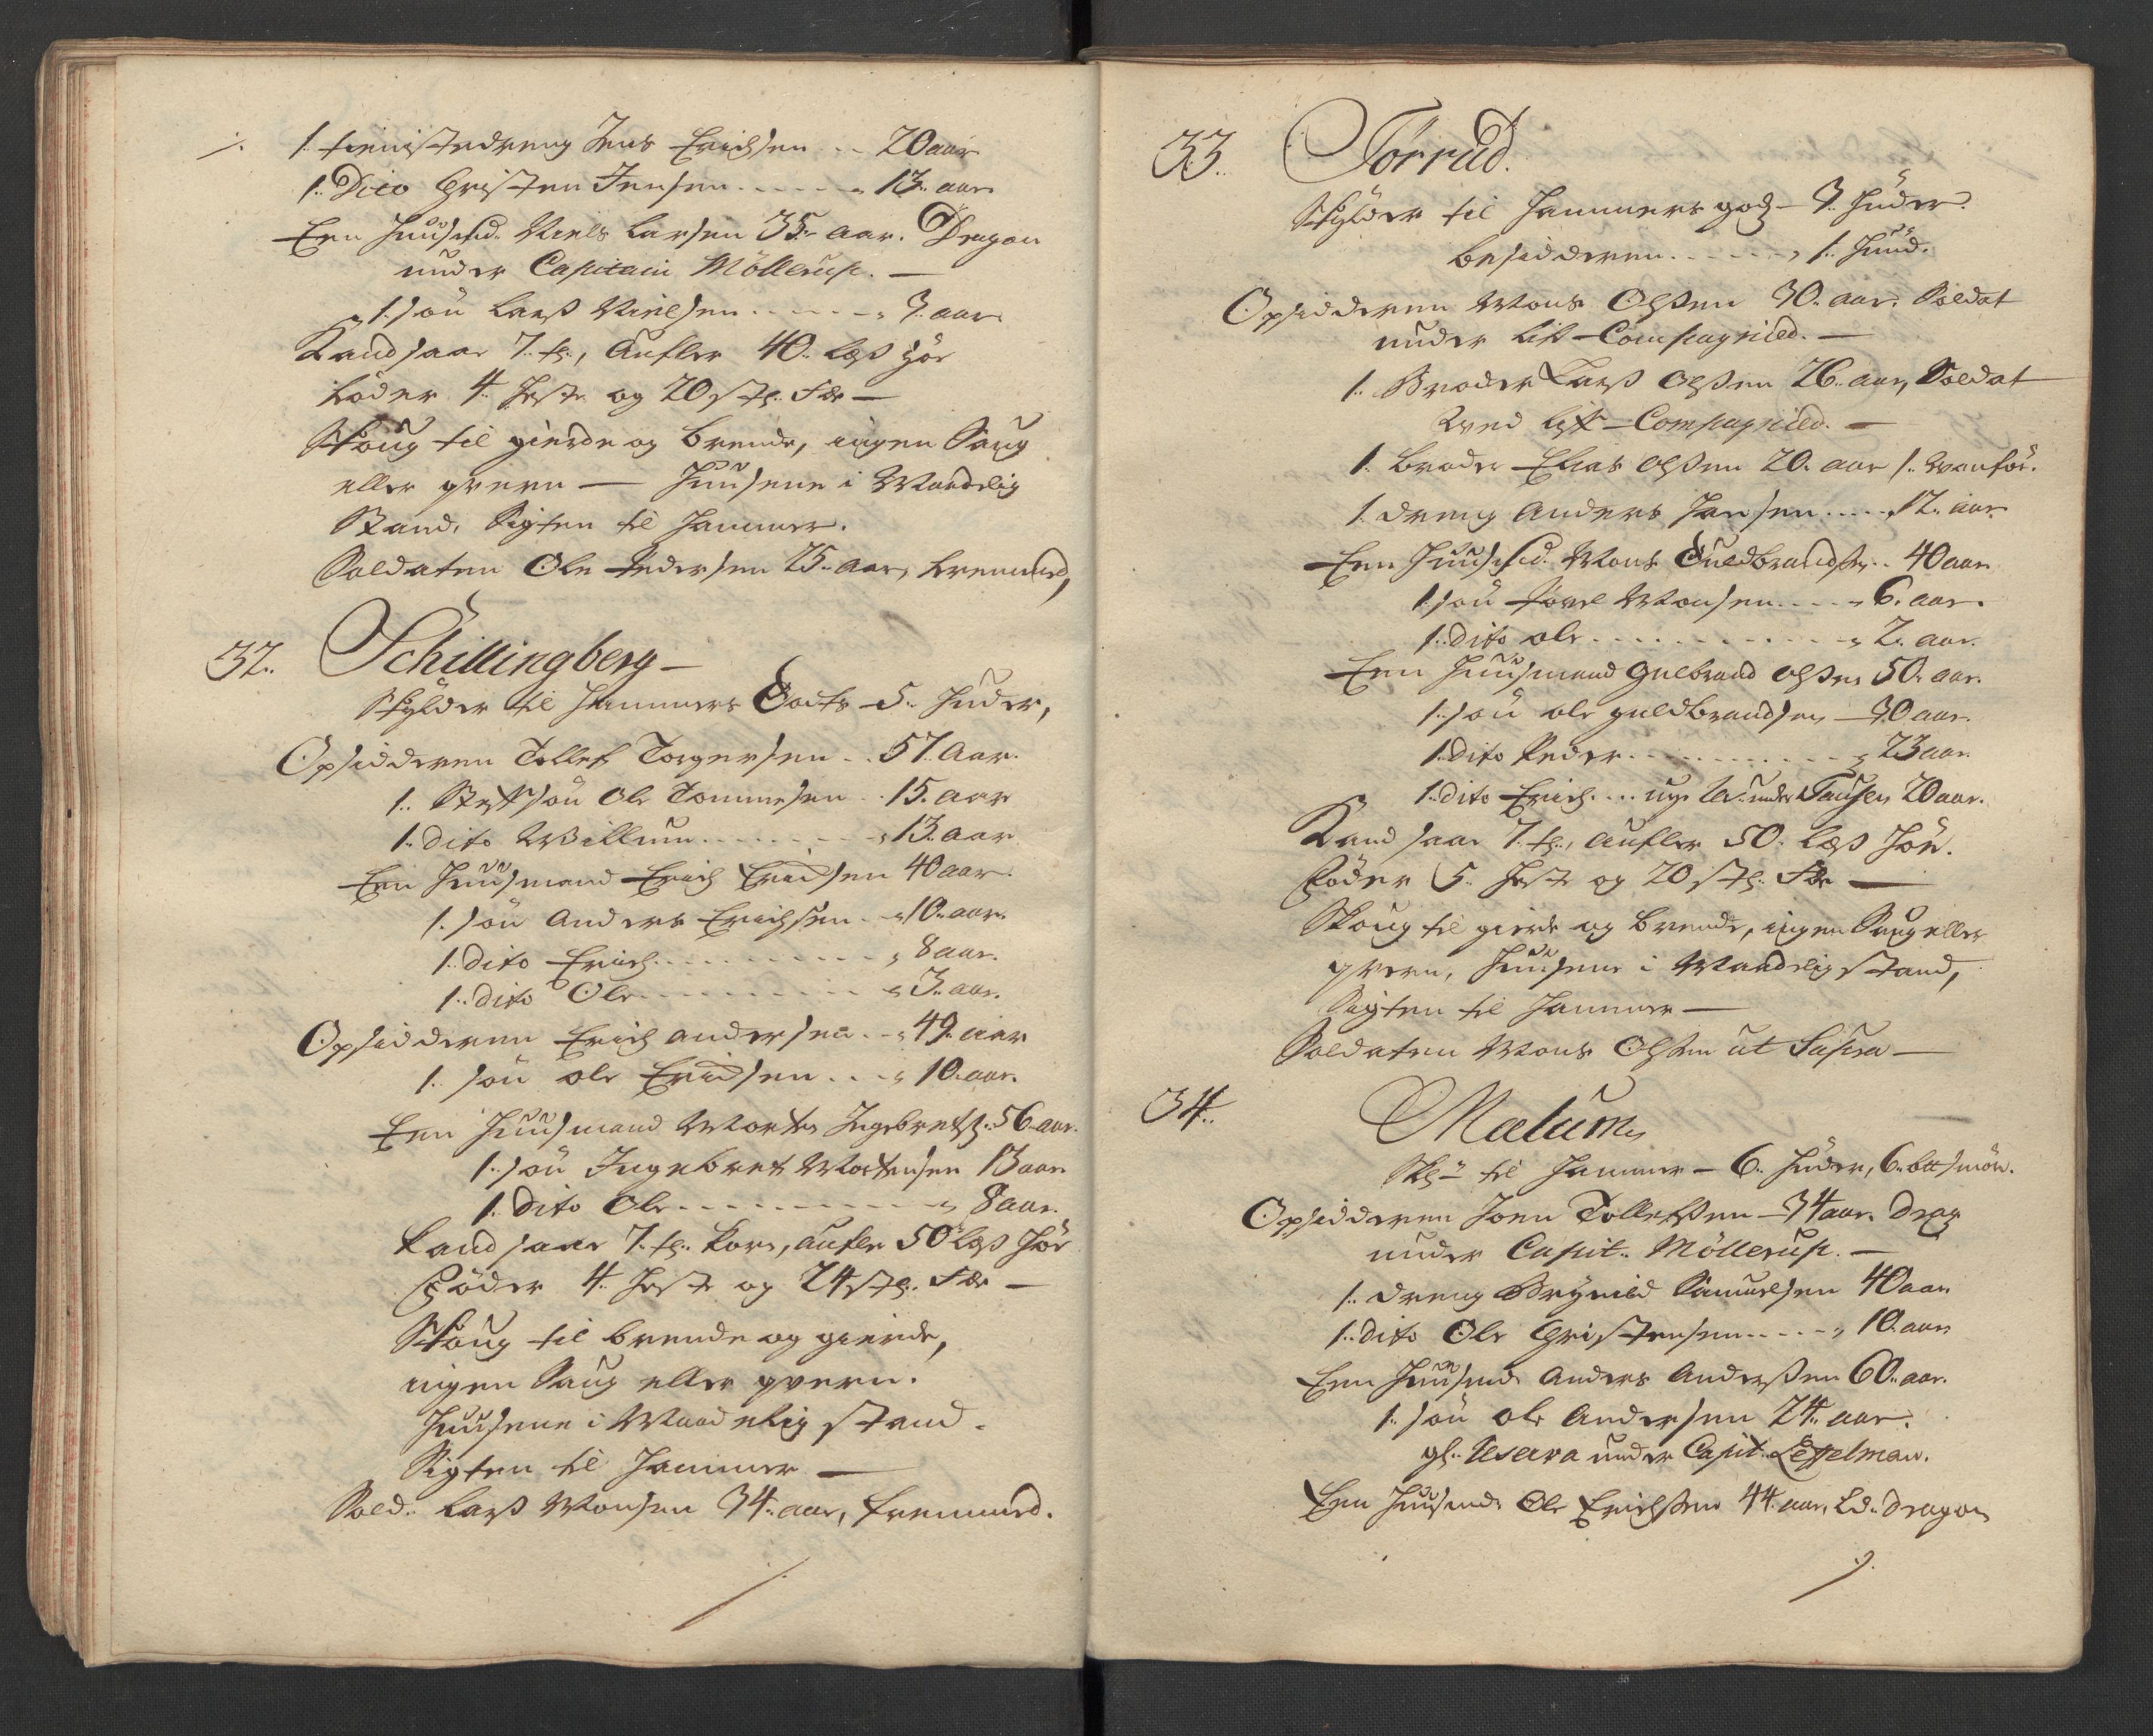 1. tienistedreng Jens Erichsen .. 20 aar
1. Dito Christen Jensen ...... 13. aar
Een Huusmd. Niels Larsen 35. aar. Dragon
under Capitain Möllerup. —
1. søn Lars Nielsen ...... 3. aar
Kand saae 7. tr., aufler 40. læs høe
föder 4. Heste og 20 stk. Fæe —
Skoug til gierde og brende, ingen Saug
eller qvern — Huusene i Maadelig
Stand. Sigten til Hammer.
Soldaten Ole Pedersen 25. aar, fremmed,
32. Schillingberg —
Skylder til Hammers Godts 5. Huder,
Opsidderen Tollef Torgersen .. 57. Aar.
1. Stefsøn Ole Tommesen .. 15. aar
1. dito Willum ...... 13. aar
Een Huusmand Erich Erichsen 40 aar.
1. søn Anders Erichsen .. 10. aar.
1. dito Erich .......... 8 aar.
1. dito Ole .......... 3. aar.
Opsidderen Erich andersen .. 49. aar
1. søn ole Erichsen ... 10. aar.
Een Huusmand Morten Ingebretss. 56. aar.
1. søn Ingebret Mortensen 13 aar
1. dito Ole .......... 8 aar.
kand saae 7. tr. korn, aufle 50 læs høe
Föder 4. Heste og 24 stk. Fæe —
Skoug til brende og gierde,
ingen Saug eller qvern.
Huusene i Maadelig stand.
Sigten til Hammer —
Sold. Lars Monsen 34. aar, fremmed.
33. Törrud.
Skylder til Hammers godz — 3. Huder.
besidderen ...... 1. Hund.
Opsidderen Mons Olssen 30. aar. Soldat
under Lif-Compagnied. —
1. Broder Lars Olssen 26. aar, Soldat
ved Lif-Compagnied. —
1. broder Elias Olssen 20. aar /. vanför.
1. dreng Anders Hansen .... 12. aar
Een Huusmd. Mons Guldbrandsen .. 40 aar
1. søn Povel Monsen .... 6. aar.
1. dito ole .......... 2. aar.
Een Huusmand Gulbrand olssen 50. aar.
1. søn ole guldbrandsen — 30 aar.
1. dito Peder .......... 23 aar.
1. dito Erich .... under 20 aar.
Kand saae 7. tr., aufler 50. læs Høe.
Föder 5. Heste og 20 stk. Fæe —
Skoug til gierde og brende, ingen Saug eller
qvern, Huusene i Maadelig stand,
Sigten til Hammer —
Soldaten Mons Olssen ut Supra —
34. Mælum
Skl. til Hammer — 6. Huder, 6. smör.
Opsidderen Joen Tollefssen — 34 aar. Drag
under Capit. Möllerup. —
1. dreng Brynild Samuelsen 40 aar
1. dito Ole Christensen .... 10. aar
Een Huusmd. Anders Anderssen 60. aar.
1. søn ole Andersen 24. aar.
gl. Reserva under Capit. Leffelman.
Een Huusmd. Ole Erichsen 44. aar, Ld. dragon